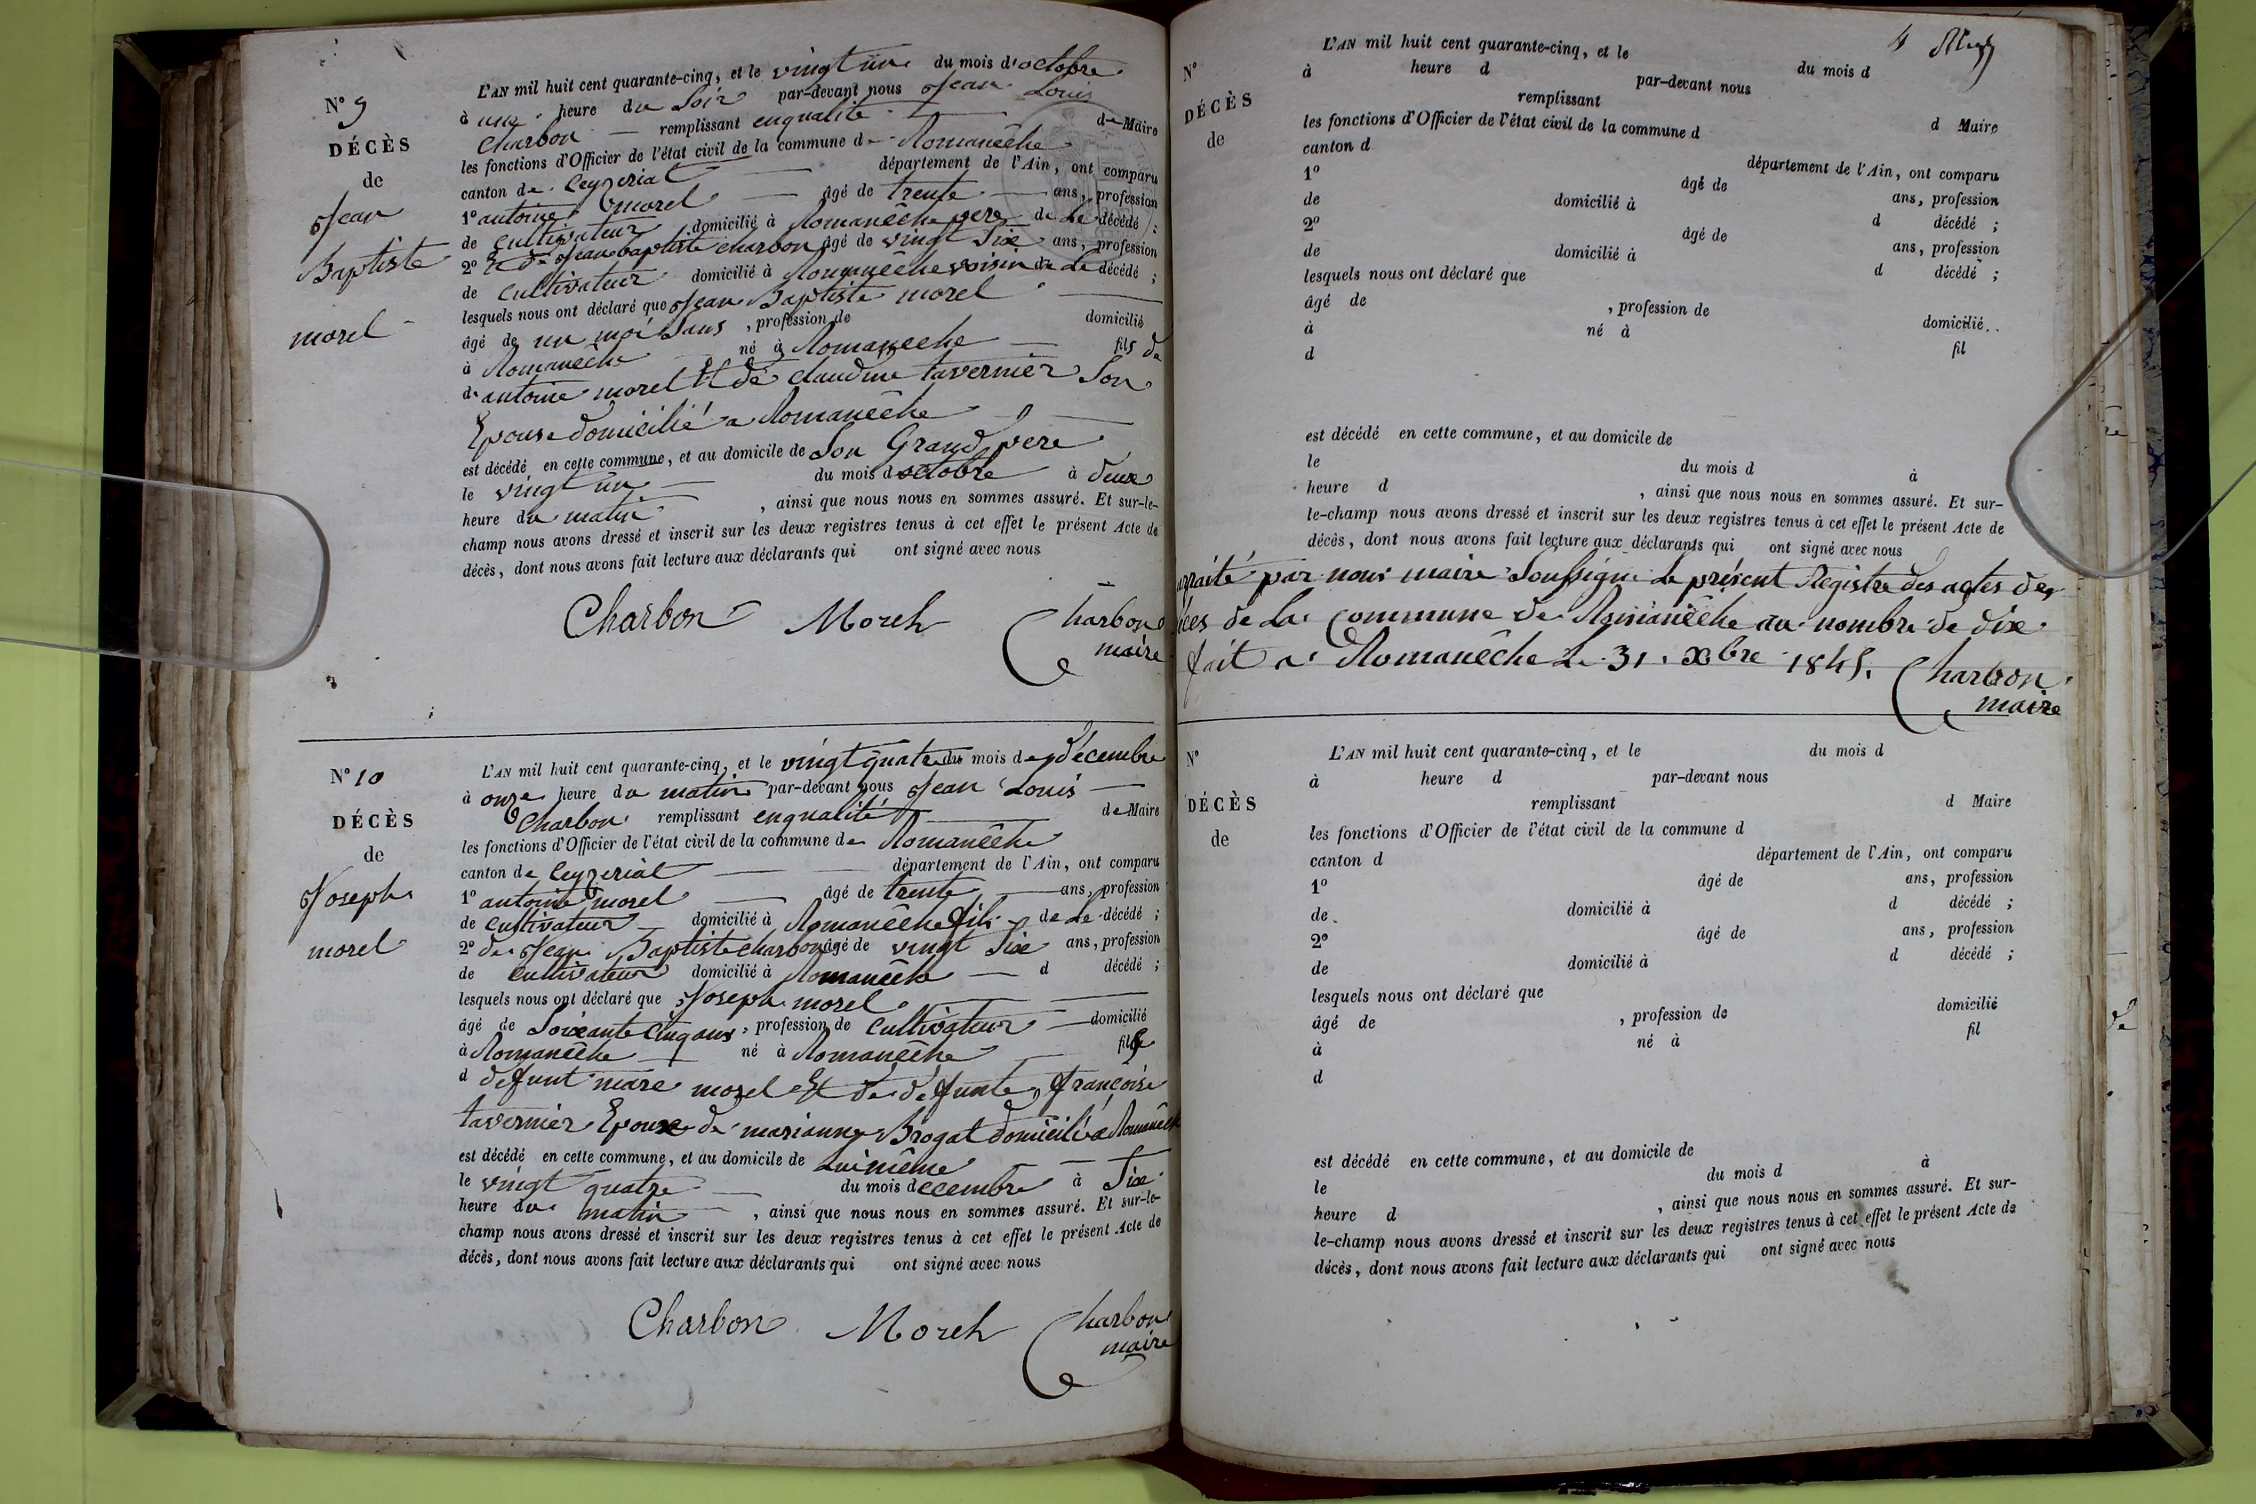 N° 9
DÉCÈS
de
Jean
Baptiste
morel
L'AN mil huit cent quarante-cinq, et le vingt un du mois d'octobre
à une heure du Soir par-devant nous Jean Louis
Charbon remplissant enqualité de Maire
les fonctions d'Officier de l'état civil de la commune de Romanêche
canton de Ceyzeriat département de l'Ain, ont comparu
1° antoine morel âgé de trente ans, profession
de Cultivateur domicilié à Romanêche pere de Le décédé ;
2° Et de Jean baptiste charbon âgé de vingt Six ans, profession
de Cultivateur domicilié à Romanêche voisin de Le décédé ;
lesquels nous ont déclaré que Jean Baptiste morel
âgé de un moi Sans , profession de domicilié
à Romanêche né à Romaneche fils de
d. antoine morel Et de claudine tavernier Son
Epouse domicilié a Romanêche
est décédé en cette commune, et au domicile de Son Grand pere
le vingt un du mois d octobre à deux
heure du matin , ainsi que nous nous en sommes assuré. Et sur-le-
champ nous avons dressé et inscrit sur les deux registres tenus à cet effet le présent Acte de
décès, dont nous avons fait lecture aux déclarants qui ont signé avec nous
Charbon Morel Charbon
maire
N° 10
DÉCÈS
de
Joseph
morel
L'AN mil huit cent quarante-cinq, et le vingt quatre du mois de décembre
à onze heure du matin par-devant nous Jean Louis
Charbon remplissant enqualité de Maire
les fonctions d'Officier de l'état civil de la commune de Romanêche
canton de Ceyzeriat département de l'Ain, ont comparu
1° antoine morel âgé de trente ans, profession
de Cultivateur domicilié à Romanêche fils de Le décédé ;
2° de Jean Baptiste charbon âgé de vingt Six ans, profession
de Cultivateur domicilié à Romanêche d décédé ;
lesquels nous ont déclaré que Joseph morel
âgé de Soixante Cinq ans , profession de Cultivateur domicilié
à Romanêche né à Romanêche fils
d défunt marc morel Et de défunte françoise
tavernier Epoux de marianne Brogat domicilié a Romanêche
est décédé en cette commune, et au domicile de Lui même
le vingt quatre du mois decembre à Six
heure du matin , ainsi que nous nous en sommes assuré. Et sur-le-
champ nous avons dressé et inscrit sur les deux registres tenus à cet effet le présent Acte de
décès, dont nous avons fait lecture aux déclarants qui ont signé avec nous
Charbon Morel Charbon
maire
4
N°
DÉCÈS
de
L'AN mil huit cent quarante-cinq, et le du mois d
à heure d par-devant nous
remplissant d Maire
les fonctions d'Officier de l'état civil de la commune d
canton d département de l'Ain, ont comparu
1° âgé de ans, profession
de domicilié à d décédé ;
2° âgé de ans, profession
de domicilié à d décédé ;
lesquels nous ont déclaré que
âgé de , profession de domicilié
à né à fil
d
est décédé en cette commune, et au domicile de
le du mois d à
heure d , ainsi que nous nous en sommes assuré. Et sur-
le-champ nous avons dressé et inscrit sur les deux registres tenus à cet effet le présent Acte de
décès, dont nous avons fait lecture aux déclarants qui ont signé avec nous
par nous maire Soussigné Le présent Registre des actes de
de La Commune de Romanêche au nombre de dix
fait a Romanêche Le 31 xbre 1845. Charbon
maire
N°
DÉCÈS
de
L'AN mil huit cent quarante-cinq, et le du mois d
à heure d par-devant nous
remplissant d Maire
les fonctions d'Officier de l'état civil de la commune d
canton d département de l'Ain, ont comparu
1° âgé de ans, profession
de domicilié à d décédé ;
2° âgé de ans, profession
de domicilié à d décédé ;
lesquels nous ont déclaré que
âgé de , profession de domicilié
à né à fil
d
est décédé en cette commune, et au domicile de
le du mois d à
heure d , ainsi que nous nous en sommes assuré. Et sur-
le-champ nous avons dressé et inscrit sur les deux registres tenus à cet effet le présent Acte de
décès, dont nous avons fait lecture aux déclarants qui ont signé avec nous